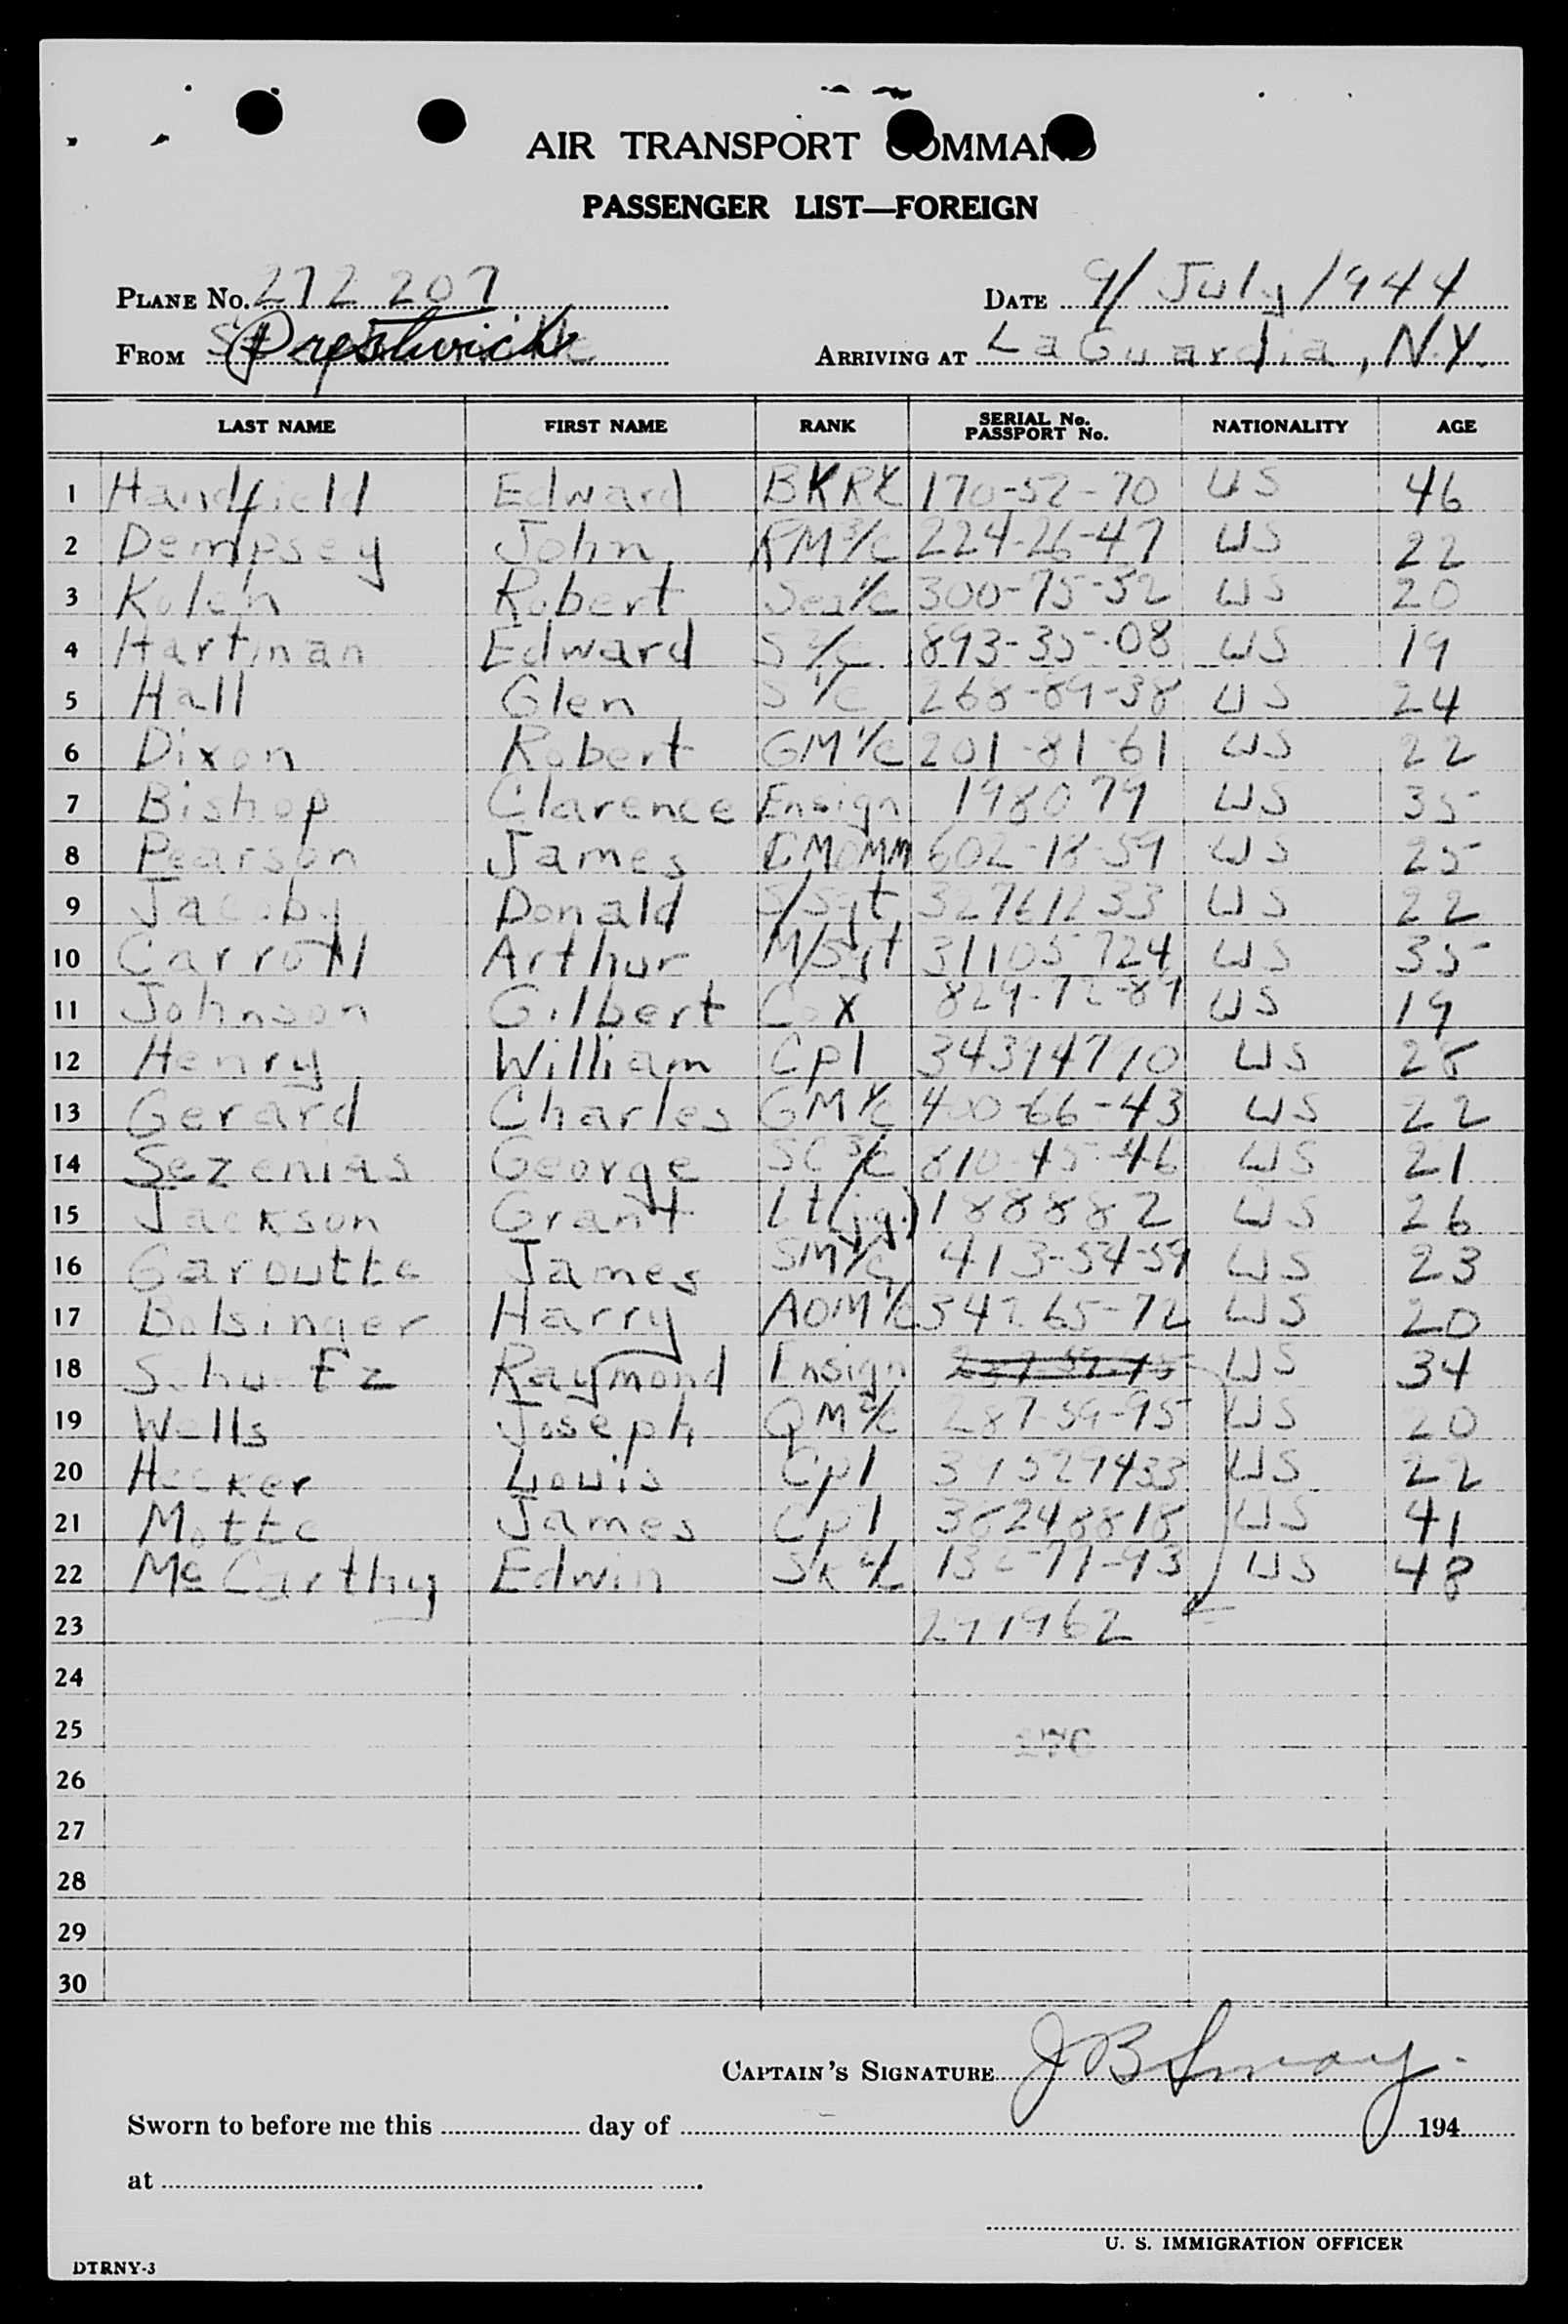 AIR TRANSPORT COMMAND
PASSENGER LIST—FOREIGN
PLANE No. 272207 DATE 9/July/1944
FROM Prestwick ARRIVING AT LaGuardia, N.Y.
LAST NAME FIRST NAME RANK SERIAL No. PASSPORT No. NATIONALITY AGE
1 Handfield Edward 170-52-70 US 46
2 Dempsey John RM 3/c 224-26-47 US 22
3 Kolen Robert Sea 1/c 300-75-52 US 20
4 Hartman Edward S 2/c 893-35-08 US 19
5 Hall Glen S 1/c 268-89-38 US 24
6 Dixon Robert GM 1/c 201-81-61 US 22
7 Bishop Clarence Ensign 198079 US 35
8 Pearson James CMOMM 602-18-59 US 25
9 Jacoby Donald S/Sgt 32761233 US 22
10 Carroll Arthur M/Sgt 31105724 US 35
11 Johnson Gilbert Cox 829-72-89 US 19
12 Henry William Cpl US 28
13 Gerard Charles GM 1/c 400-66-43 US 22
14 Sezenias George SC 3/c 810-45-46 US 21
15 Jackson Grant Lt(j.g.) 188882 US 26
16 Garoutte James SM 1/c 413-54-59 US 23
17 Bolsinger Harry AOM 1/c 342-65-72 US 20
18 Schultz Raymond Ensign US 34
19 Wells Joseph QM 2/c 287-59-95 US 20
20 Hecker Louis Cpl 39529433 US 22
21 Motte James Cpl 36248818 US 41
22 McCarthy Edwin SK 2/c US 48
23 291962
24
25
26
27
28
29
30
CAPTAIN'S SIGNATURE
Sworn to before me this day of 194
at
U. S. IMMIGRATION OFFICER
DTRNY-3